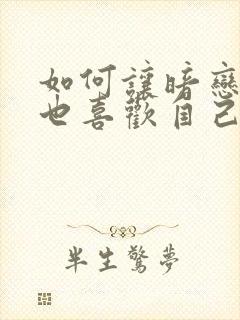 如何讓暗戀
也喜歡自己
半生驚夢